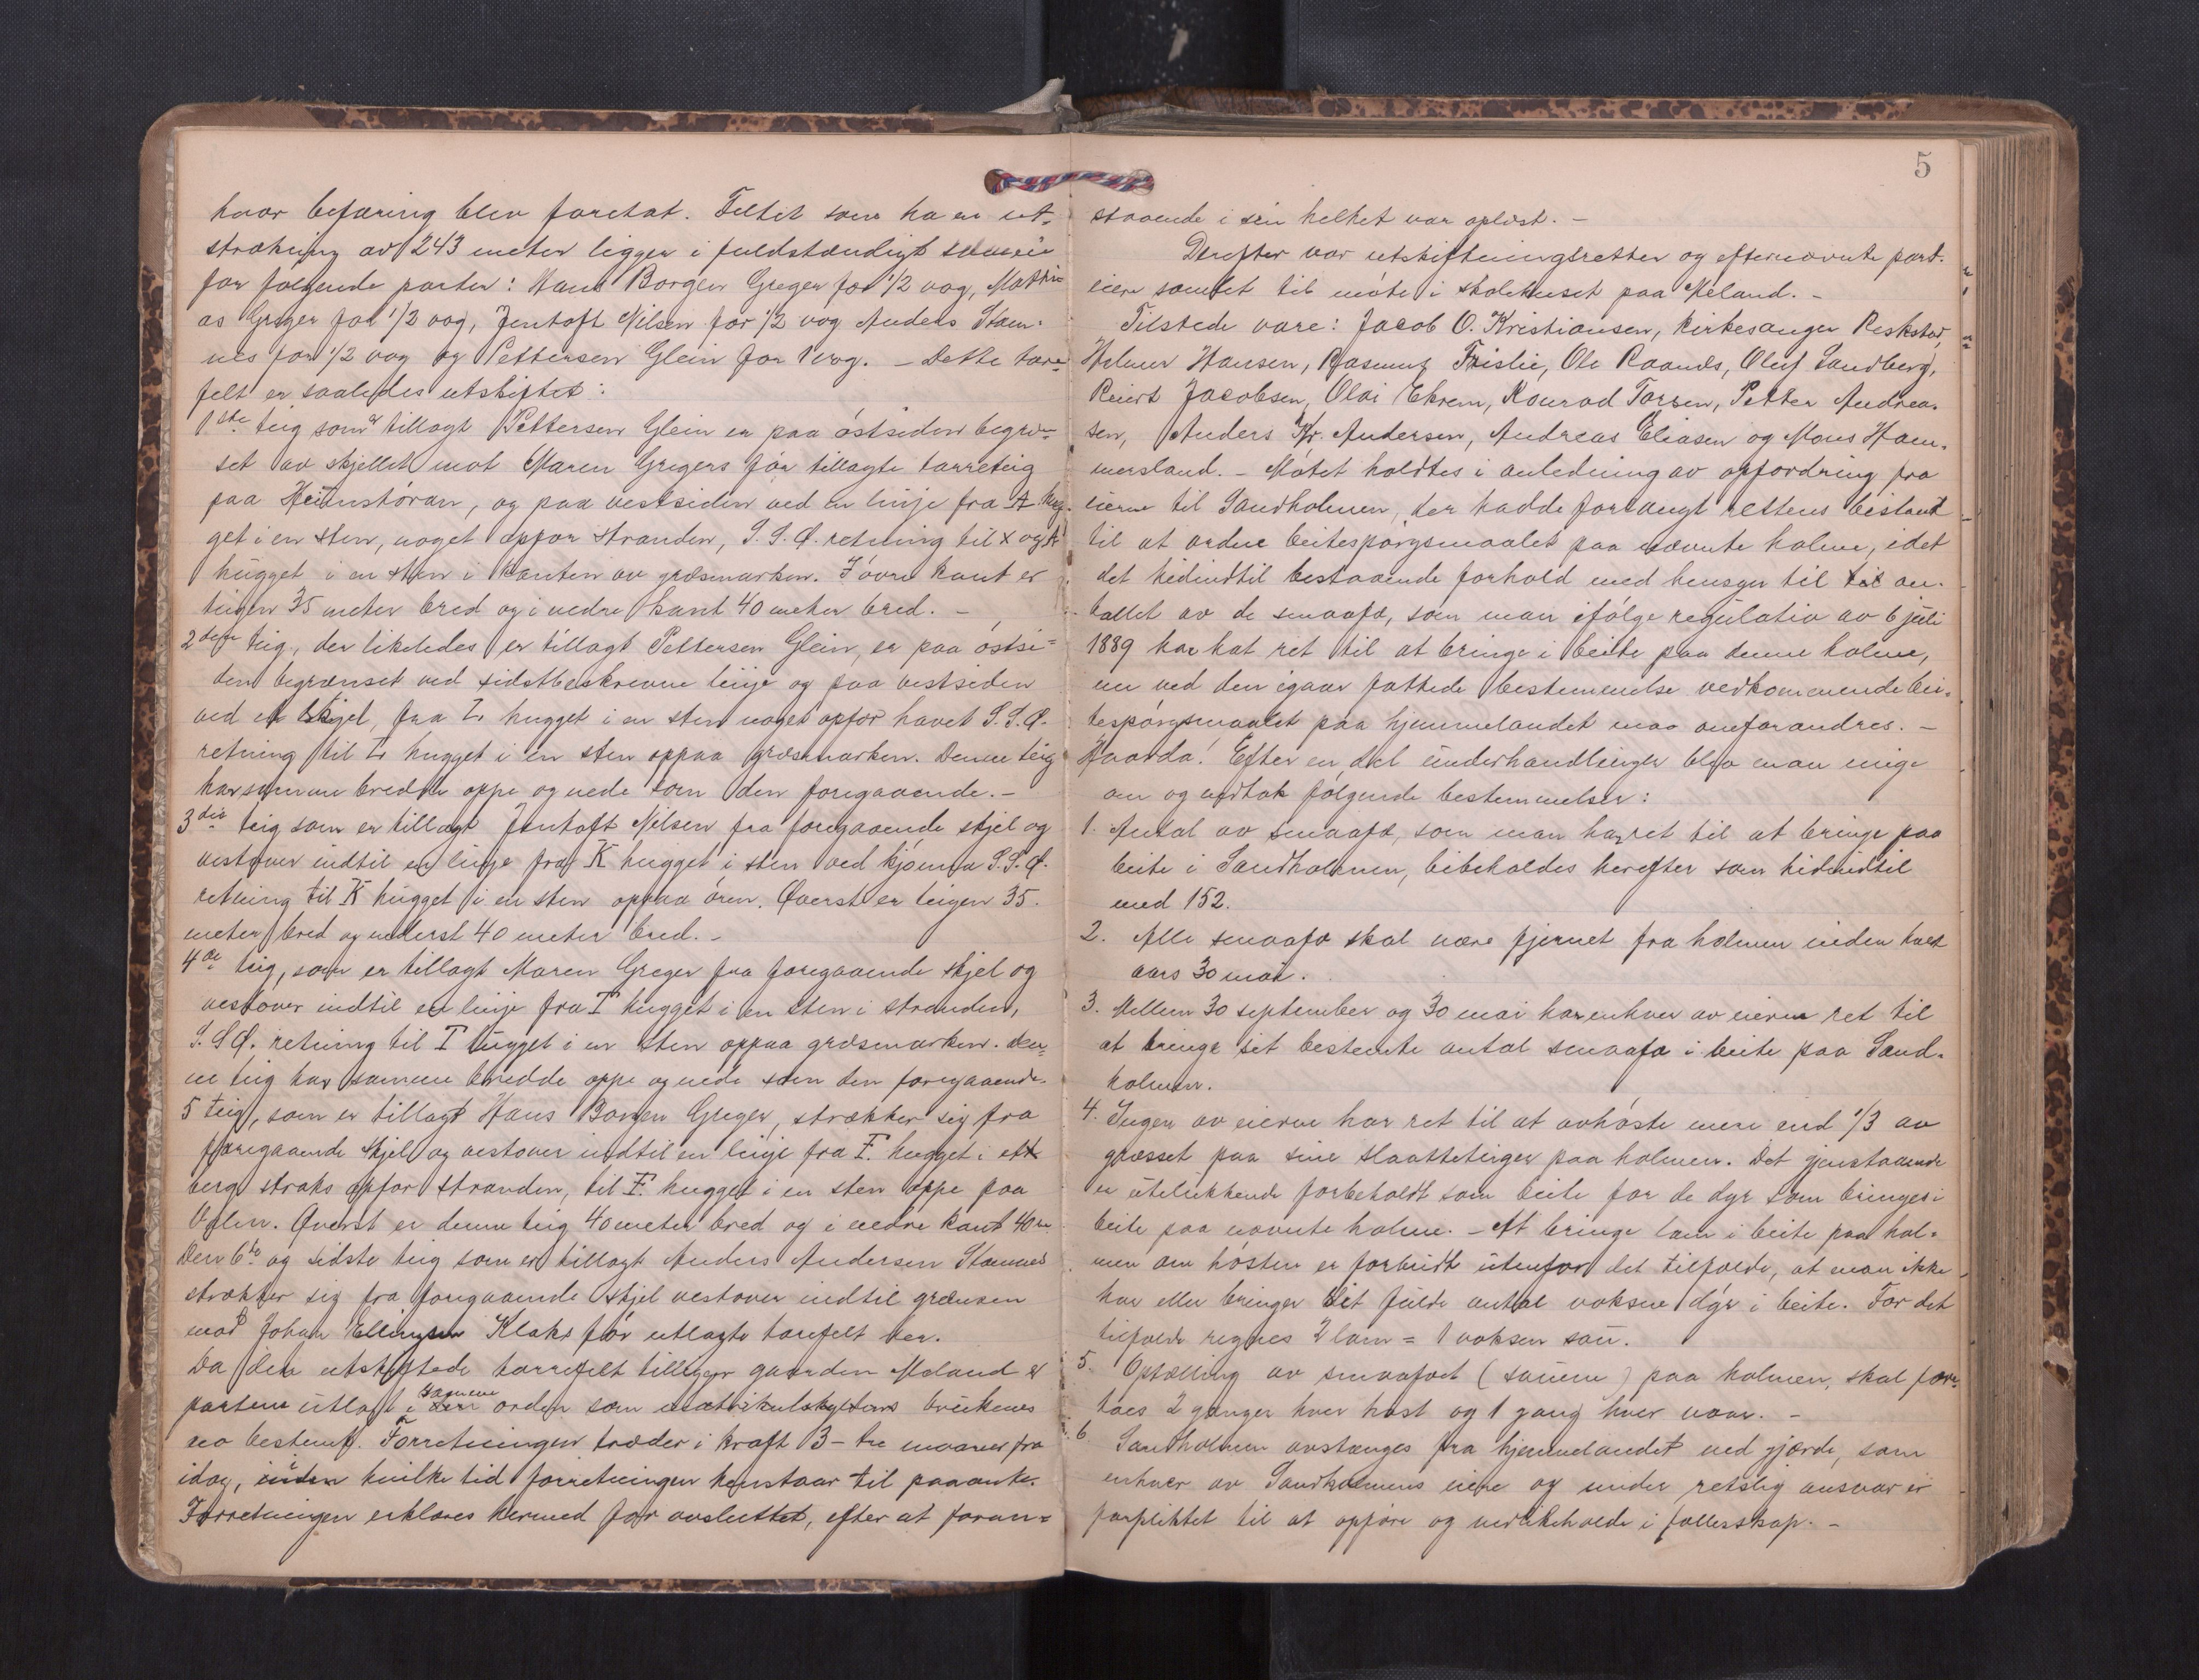 hvor befaring blev foretat. Feltet som har en ut-
strækning av 243 meter ligger i fuldstændigt sameie
for følgende parter: Hans Borgen Greger for 1/2 vog, Mathi-
as Greger for 1/2 vog, Jentoft Nilsen for 1/2 vog Anders Stam-
nes for 1/2 vog og Pettersen Glein for 1 vog. – Dette tare-
felt er saaledes utskiftet:
1ste teig som er tillagt Pettersen Glein er paa østsiden begræn-
set av skjellet mot Maren Gregers før tillagte tarreteig
paa Heimstøran, og paa vestsiden ved en linje fra A hug-
get i en sten, noget opfor stranden, S.S.Ø. retning til x og A
hugget i en sten i kanten av græsmarken. I øvre kant er
teigen 35 meter bred og i nedre kant 40 meter bred. –
2den teig, der likeledes er tillagt Pettersen Glein, er paa østsi-
den begrænset ved sidstbeskrevne linje og paa vestsiden
ved et skjel, fra L hugget i en sten noget opfor havet S.S.Ø.
retning til L hugget i en sten oppaa græsmarken. Denne teig
har samme bredde oppe og nede som den foregaaende. –
3die teig som er tillagt Jentoft Nilsen fra foregaaende skjel og
vestover indtil en linje fra K hugget i sten ved kjønna S.S.Ø.
retning til K hugget i en sten oppaa øren. Øverst er teigen 35
meter bred og nederst 40 meter bred. –
4de teig, som er tillagt Maren Greger fra foregaaende skjel og
vestover indtil en linje fra I hugget i en sten i stranden,
S.S.Ø. retning til I hugget i en sten oppaa græsmarken. Den-
ne teig har samme bredde oppe og nede som den foregaaende.
5 teig, som er tillagt Hans Borgen Greger, strækker sig fra
foregaaende skjel og vestover indtil en linje fra F. hugget i ett
berg straks opfor stranden, til F. hugget i en sten oppe paa
Øverst er denne teig 40 meter bred og i nedre kant 40 m
Den 6te og sidste teig som er tillagt Anders Andersen Stamnes
strækker sig fra foregaaende skjel vestover indtil grænsen
mod Johan Ellingsen Klaks før utlagte tarefelt her.
Da den utskiftede tarrefelt tillegger gaarden Meland er
partene utlagt i samme orden som matrikulskylden brukenes
no bestemt. Forretningen træder i kraft 3 – tre maaner fra
idag, inden hvilke tid forretningen henstaar til paaanke.
Forretningen erklæres hermed for avsluttet, efter at foran-
5
staaende i sin helhet var oplæst. –
Derefter var utskiftningsretten og efternævnte part-
eiere samlet til møte i skolehuset paa Meland. –
Tilstede vare: Jacob O. Kristiansen, kirkesanger Reksted,
Helmer Hansen, Rasmus Frislie, Ole Raands, Oluf Sandberg,
Reiert Jacobsen, Olai Ekrem, Konrad Torsen, Petter Andrea-
sen, Anders Kr. Andersen, Andreas Eliasen og Mons Ham-
mersland. – Møtet holdtes i anledning av opfordring fra
eierne til Sandholmen, der hadde forlangt rettens bistand
til at ordne beitespørgsmaalet paa nævnte holme, idet
det hidindtil bestaaende forhold med hensyn til til an-
tallet av de smaafæ, som man ifølge regulativ av 6 juli
1889 har hat ret til at bringe i beite paa denne holme,
nu ved den igaar fattede bestemmelse vedkommende bei-
tespørgsmaalet paa hjemmelandet maa omforandres. –
Haarda! Efter en del underhandlinger blev man enige
om og vedtok følgende bestemmelser:
1. Antal av smaafæ, som man har ret til at bringe paa
beite i Sandholmen, bibeholdes herefter som hidindtil
med 152.
2. Alle smaafæ skal være fjernet fra holmen inden hvert
aars 30 mai.
3. Mellem 30 september og 30 mai har enhver av eierne ret til
at bringe sit bestemte antal smaafæ i beite paa Sand-
holmen.
4. Ingen av eierne har ret til at avhøste mere end 1/3 av
græsset paa sine slaatteteiger paa holmen. Det gjenstaaende
er utelukkende forbeholdt som beite for de dyr som bringes i
beite paa nævnte holme. – At bringe lam i beite paa hol-
men om høsten er forbudt utenfor det tilfælde, at man ikke
har eller bringer sit fulde antal voksne dyr i beite. For det
tilfælde regnes 2 lam = 1 voksen sau.
5. Optælling av smaafæet (sauene) paa holmen, skal fore-
taes 2 ganger hver høst og 1 gang hver vaar. –
6 Sandholmen avstænges fra hjemmelandet ved gjærde, som
enhver av Sandholmens eiere og under retslig ansvar er
forpliktet til at opføre og vedlikeholde i fællesskap. –